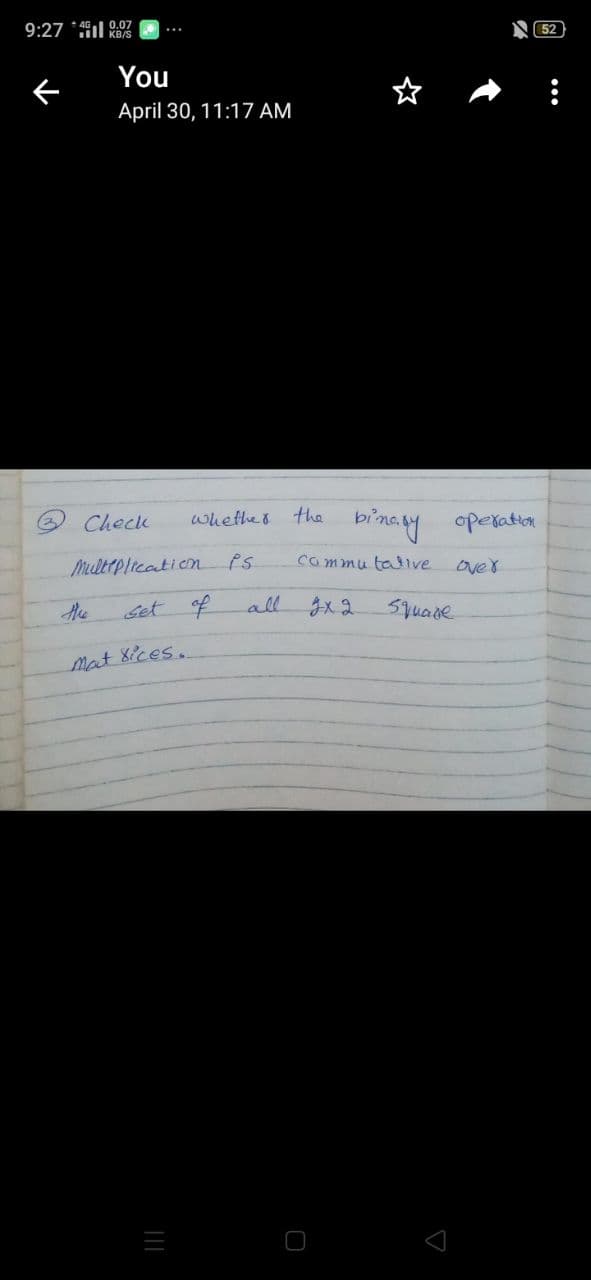 9:27 4G 0.07 KB/S ... 52
You
April 30, 11:17 AM
③ Check whether the binary operation
Multiplication is commutative over
the set of all 2x2 square
Matrices.